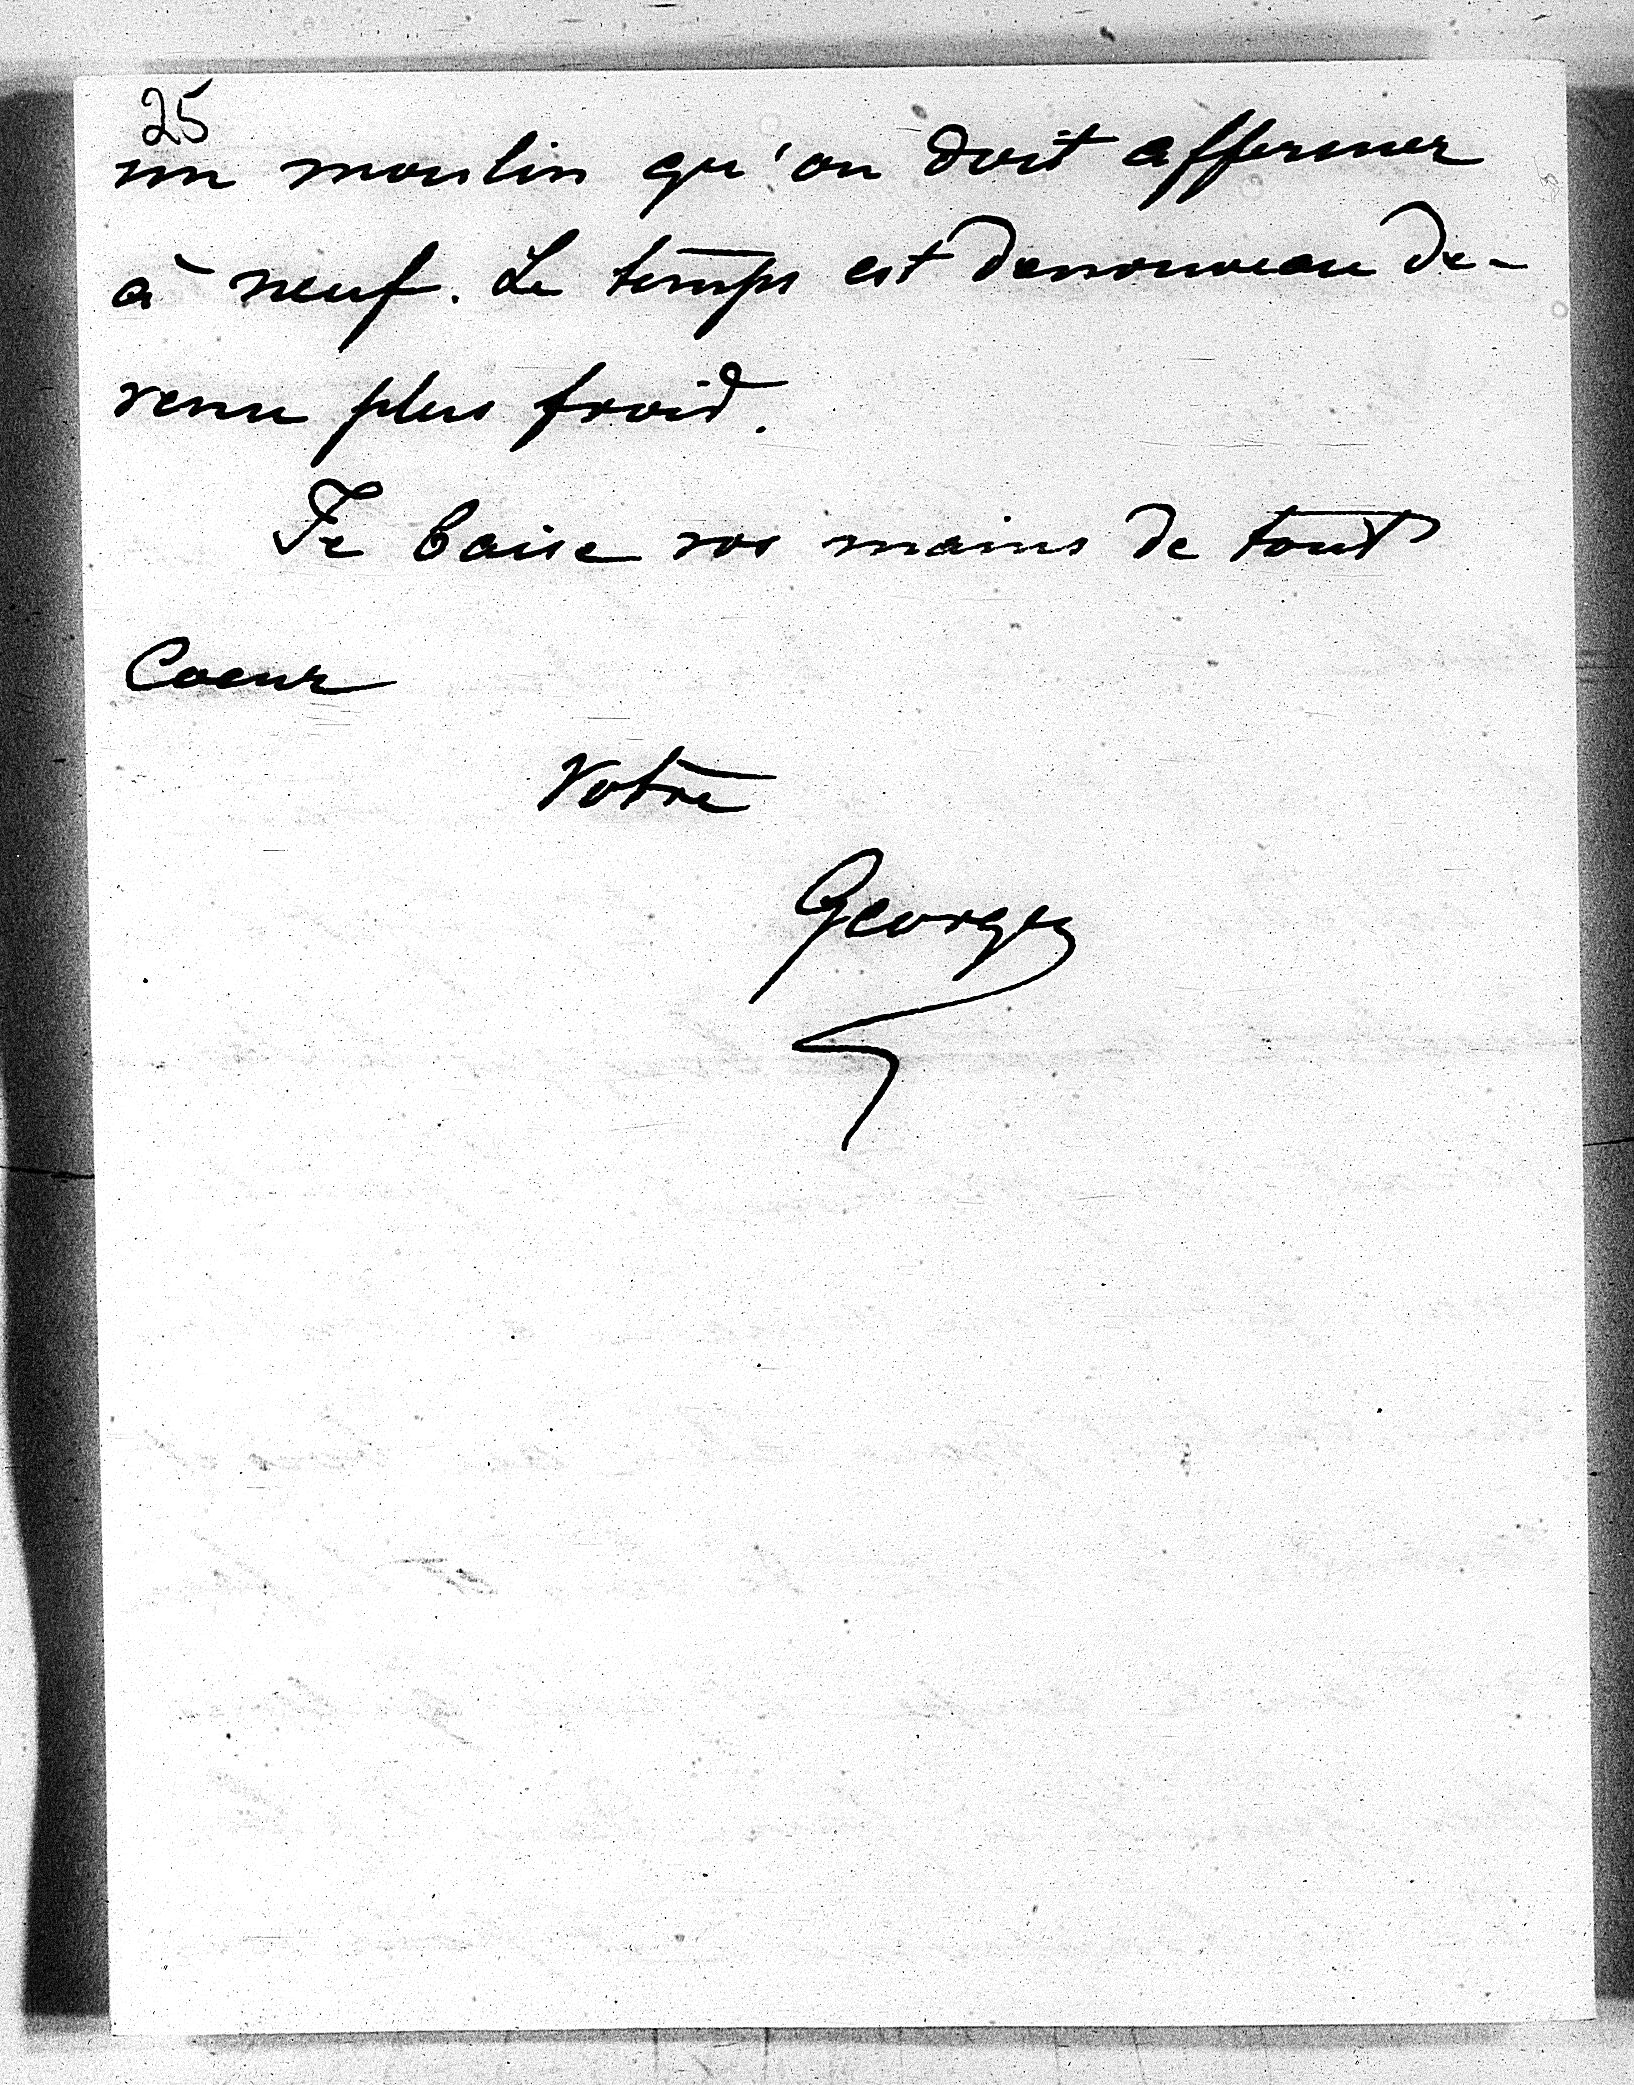 25
un moulin qu'on doit affermer
à neuf. Le temps est denouveau de-
venu plus froid.
Je baise vos mains de tout
Coeur
Votre
Georges